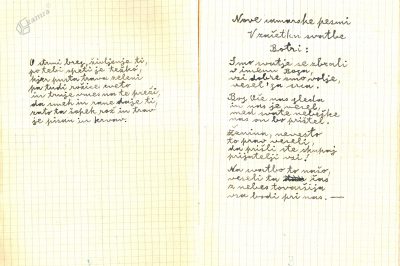 Kamra
O strmi breg, življenje ti,
po tebi speti je težko,
kjer pusta trava zeleni
pa tudi rožice cveto
in trnje vmes na te preži,
da smeh in rane daje ti,
zato ta šopek rož in trav
je pisan in krvav.
Nove umarske pesmi
V začetku svatbe
Botri:
Smo svatje se zbrali
v imenu Boga,
vsi dobre smo volje,
vesel' ga srca.
Bog Oče nas gleda
in nas je vesel,
med svate nebeške
nas on bo prištel.
Ženina, nevesto
to prav veseli,
da prišli ste skupaj
prijatelji vsi!
Na svatbo to našo,
veseli ta čas
z nebes tovaršija
vsa bodi pri nas. —